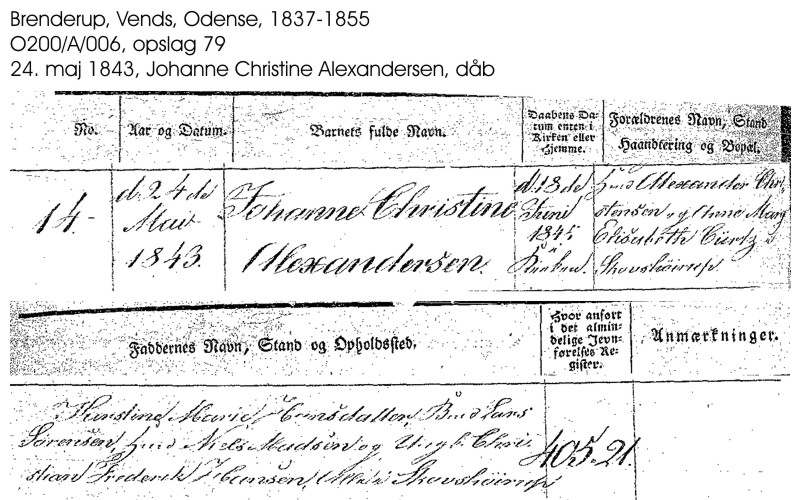 Brenderup, Vends, Odense, 1837-1855
O200/A/006, opslag 79
24. maj 1843, Johanne Christine Alexandersen, dåb
No.
Aar og Datum.
Barnets fulde Navn.
Daabens Da-
tum enten i
Kirken eller
Hjemme.
Forældrenes Navn, Stand
Haandtering og Bopæl.
14.
d. 24de
Mai
1843.
Johanne Christine
Alexandersen.
d. 18de
Juni
184
i
Kirken.
Huusm. Alexander Chri-
stensen og Anne Marg
Elisabeth Cürtz i
Skovshöirup
Faddernes Navn, Stand og Opholdssted.
Hvor anført
i det almin-
delige Jevn-
førelses Re-
gister.
Anmærkninger.
Kirstine Marie Hansdatter, Bmd Lars
Sörensen, Huusm. Niels Madsen og Ungk. Chri-
stian Frederik Hansen, Alle i Skovshöirup
405-21.